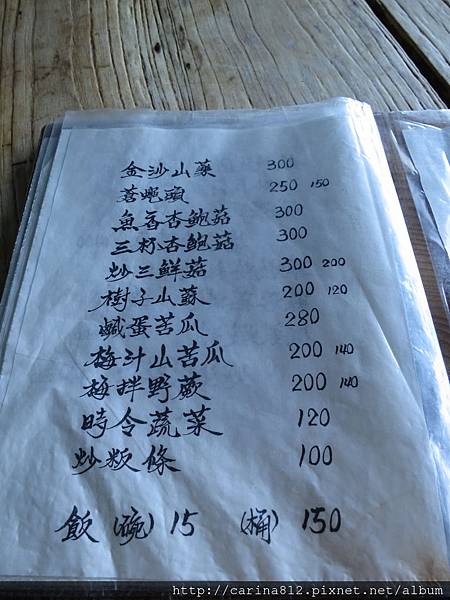 金沙山蘇 300
蒼蠅頭 250 150
魚香杏鮑菇 300
三杯杏鮑菇 300
炒三鮮菇 300 200
樹子山蘇 200 120
鹹蛋苦瓜 280
梅汁山苦瓜 200 140
梅拌野蕨 200 140
時令蔬菜 120
炒粄條 100
飯(碗) 15 (桶) 150
http://carina812.pixnet.net/album